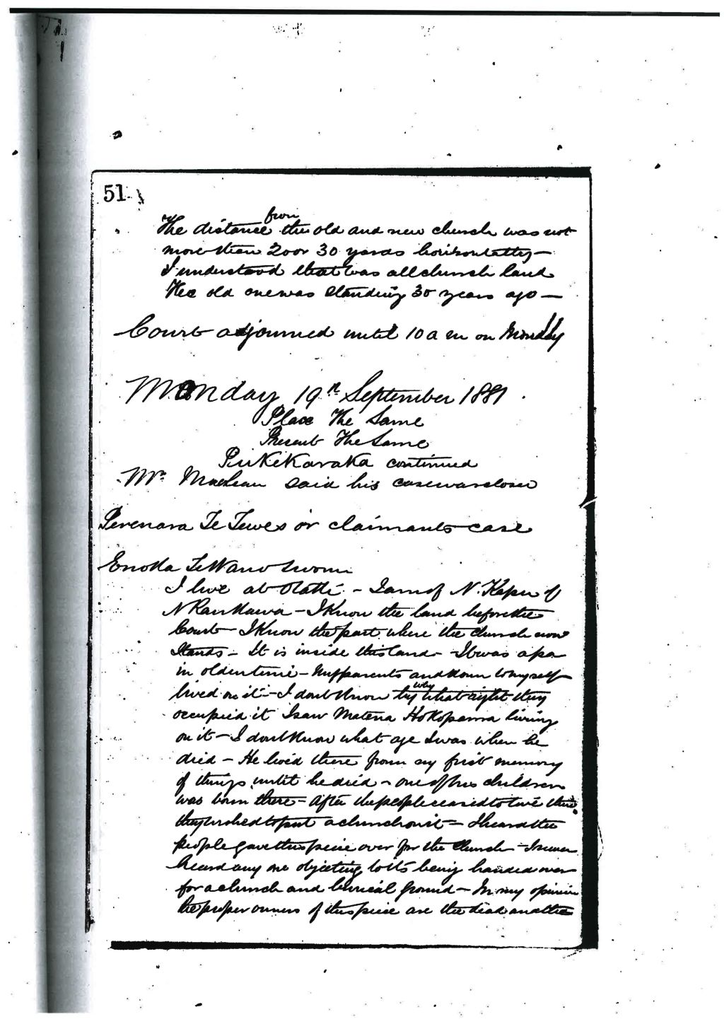 51
from
The distance the old and new church was not
more than 20 or 30 yards horizontally —
I understood that was all church land
The old one was standing 30 years ago —
Court adjourned until 10 a m on Monday
Monday 19th September 1881.
Place The Same
Present The Same
Pukekaraka continued
Mr. Maclean said his case was closed
Perenara Te Tewes or claimants case
Enoka Te Wano sworn
I live at Otaki — I am of N. Kapu of
N Raukawa — I know the land before the
Court — I know the part where the church now
stands — It is inside this land — It was a pa
in olden time — My parents and down to myself
why
lived on it — I dont know by what right they
occupied it I saw Matena living
on it — I dont know what age I was when he
died — He lived there from my first memory
of things until he died — one of his children
was born there — After the people ceased to live there
they wished to put a church on it — I heard the
people gave this piece over for the church — I never
heard any one objecting to its being handed over
for a church and burial ground — In my opinion
the proper owners of this piece are the dead and the